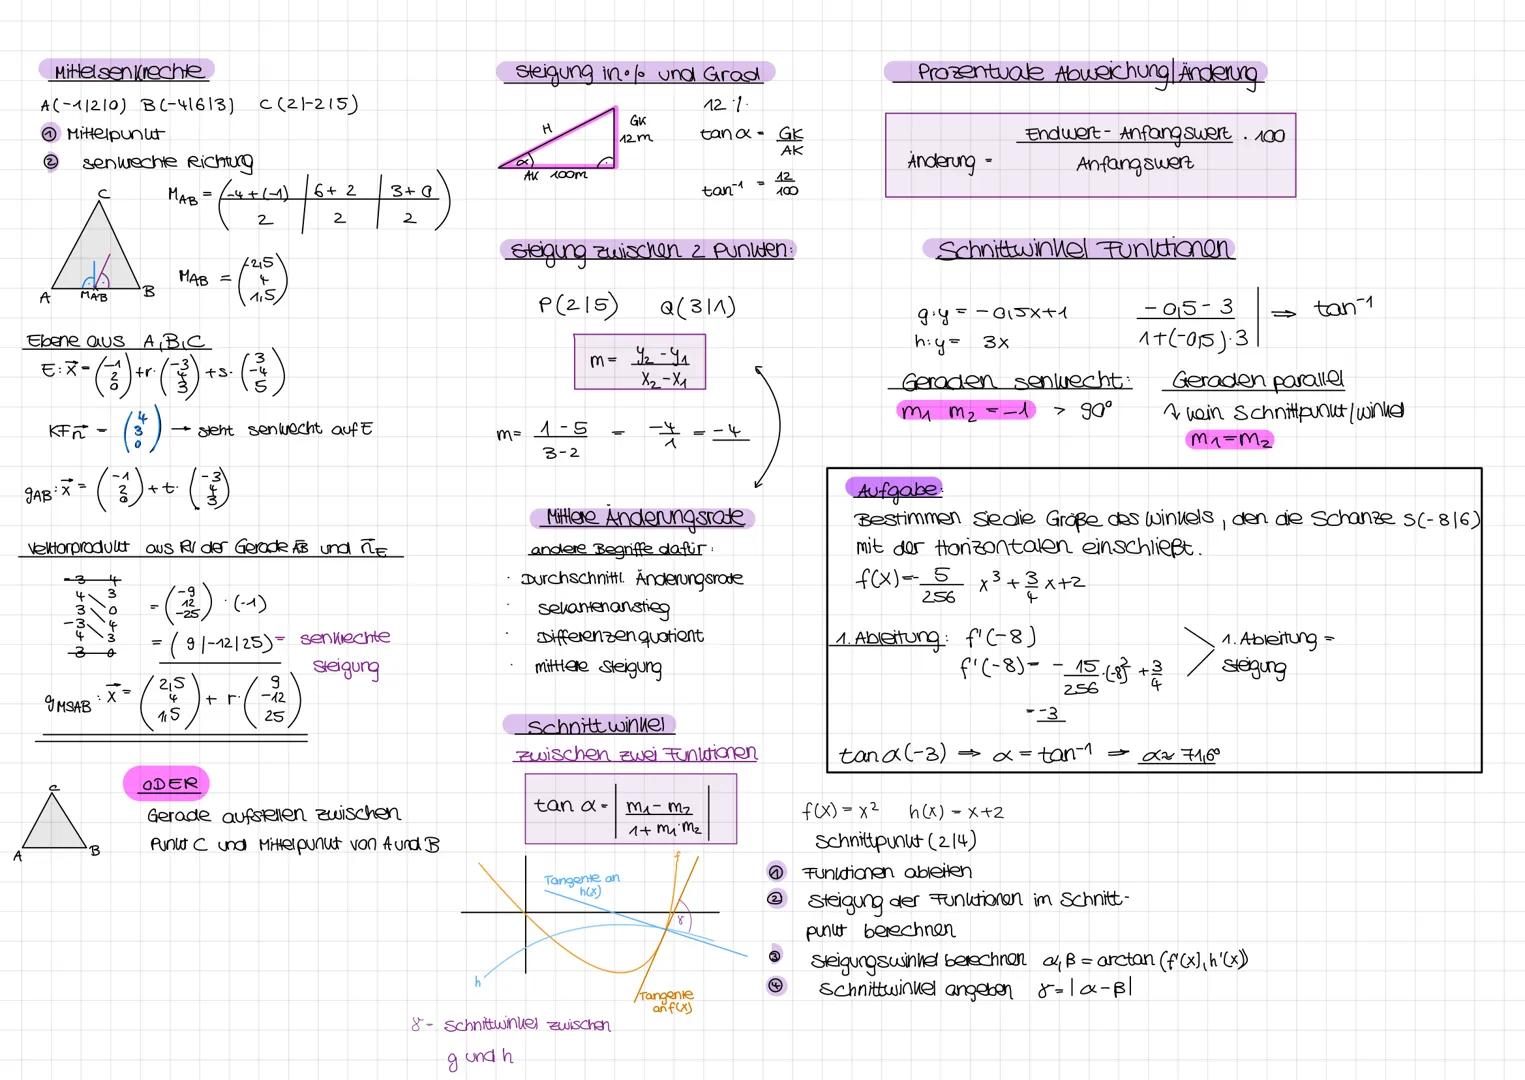 Mittelsenkrechte
A(-1|2|0) B(-4|6|3) C(2|-2|5)
① Mittelpunkt
② senkrechte Richtung
C
A
B
MAB
M_AB = ( -4+(-1) / 2 | 6+2 / 2 | 3+0 / 2 )
M_AB = ( -2,5 4 1,5 )
Ebene aus A,B,C
E: x⃗ = ( -1 2 0 ) + r· ( -3 4 3 ) + s· ( 3 -4 5 )
KF n⃗ = ( 4 3 0 ) → steht senkrecht auf E
g_AB: x⃗ = ( -1 2 0 ) + t· ( -3 4 3 )
Vektorprodukt aus RV der Gerade AB und n⃗_E
-3 4
4 3
3 0
-3 4
4 3
3 0
= ( -9 12 -25 ) · (-1)
= ( 9|-12|25) = senkrechte
Steigung
g_MSAB: x⃗ = ( 2,5 4 1,5 ) + r· ( 9 -12 25 )
C
A
B
ODER
Gerade aufstellen zwischen
Punkt C und Mittelpunkt von A und B
Steigung in % und Grad
H
GK
12m
α
AK 100m
12 %
tan α = GK / AK
tan⁻¹ = 12 / 100
Steigung zwischen 2 Punkten:
P(2|5) Q(3|1)
m = y₂ - y₁ / x₂ - x₁
m = 1-5 / 3-2 = -4 / 1 = -4
Mittlere Änderungsrate
andere Begriffe dafür:
· Durchschnittl. Änderungsrate
· Sekantenanstieg
· Differenzenquotient
· mittlere Steigung
Schnittwinkel
zwischen zwei Funktionen
tan α = | m₁ - m₂ / 1 + m₁·m₂ |
f
Tangente an
h(x)
γ
h
Tangente
an f(x)
γ - Schnittwinkel zwischen
g und h
Prozentuale Abweichung/Änderung
Änderung = Endwert - Anfangswert / Anfangswert · 100
Schnittwinkel Funktionen
g: y = -0,5x+1
h: y = 3x
-0,5 - 3 / 1+(-0,5)·3 | ⇒ tan⁻¹
Geraden senkrecht:
m₁ m₂ = -1 > 90°
Geraden parallel
↯ kein Schnittpunkt/winkel
m₁=m₂
Aufgabe:
Bestimmen Sie die Größe des Winkels, den die Schanze S(-8|6)
mit der Horizontalen einschließt.
f(x) = - 5 / 256 x³ + 3 / 4 x + 2
1. Ableitung: f'(-8)
f'(-8) = - 15 / 256 ·(-8)² + 3 / 4
= -3
1. Ableitung =
Steigung
tan α (-3) ⇒ α = tan⁻¹ ⇒ α ≈ 71,6°
f(x) = x² h(x) = x+2
Schnittpunkt (2|4)
① Funktionen ableiten
② Steigung der Funktionen im Schnitt-
punkt berechnen
③ Steigungswinkel berechnen α, β = arctan (f'(x), h'(x))
④ Schnittwinkel angeben γ = | α - β |